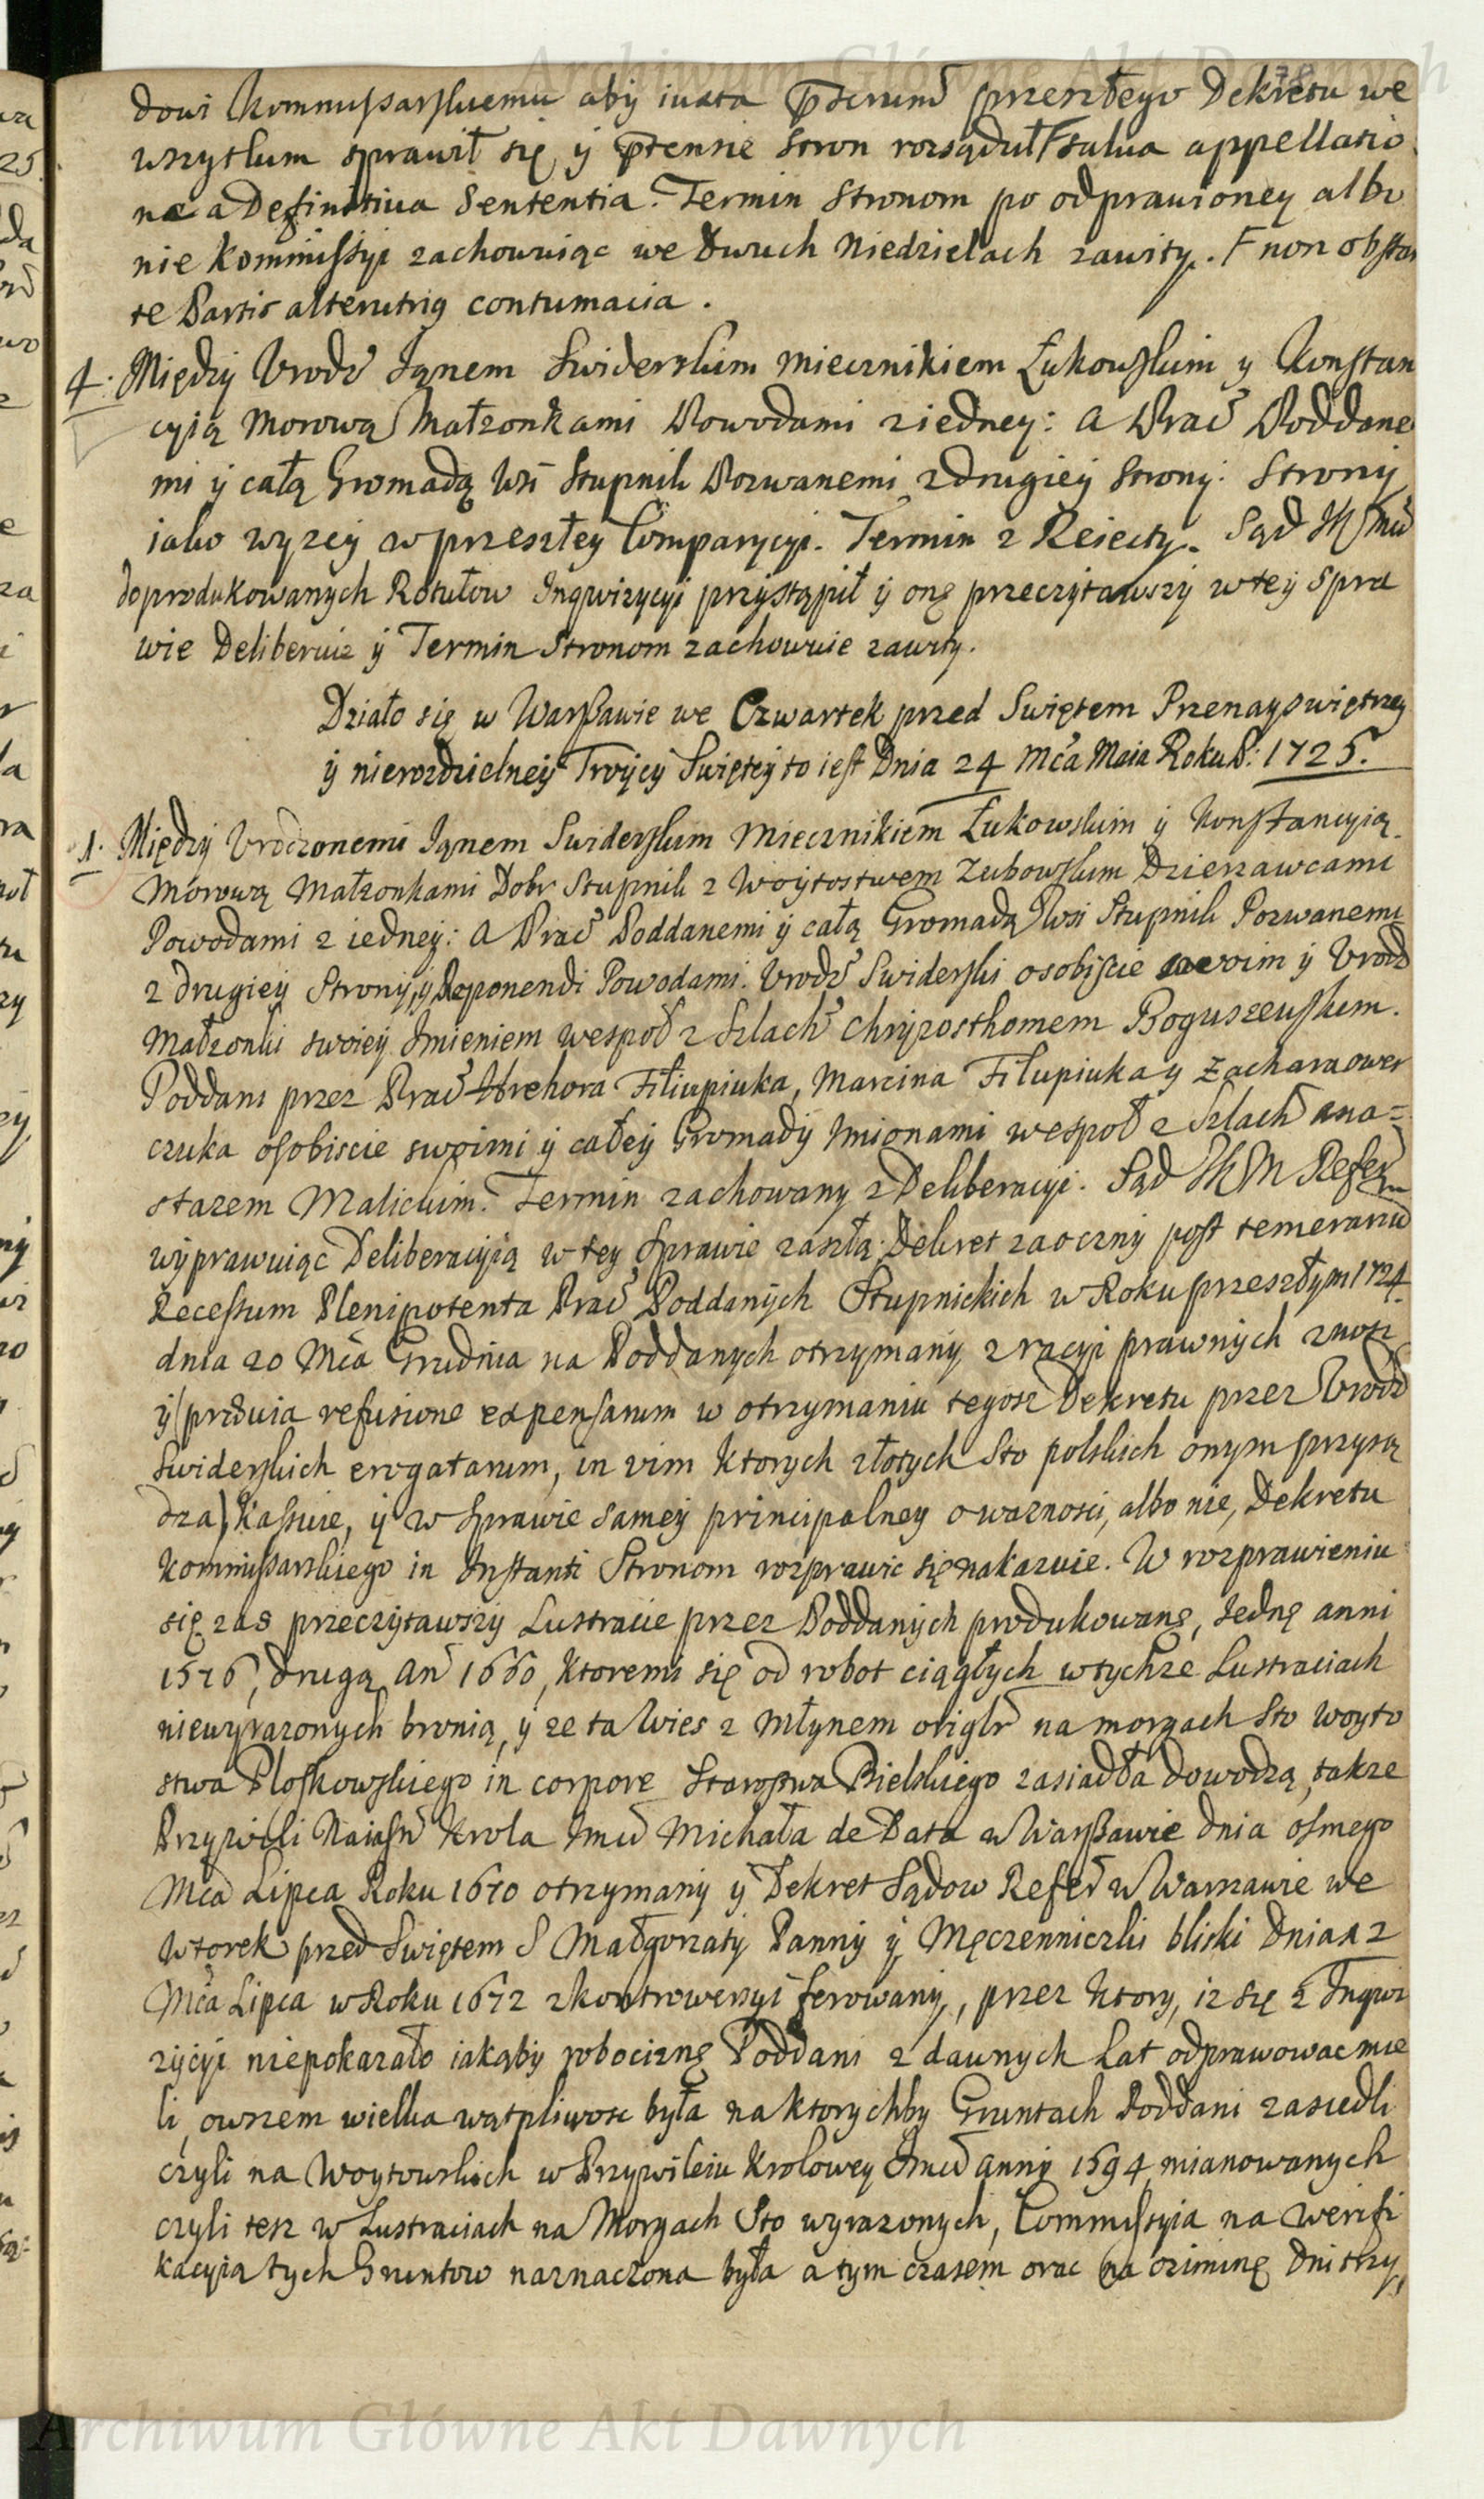 78
dowi Kommissarskiemu aby iuxta p̄scriund przeszłego Dekretu we
wszytkim sprawił się y p̄tensie stron rozsądził F salua appellatio
ne a Definitiua Sententia. Termin Stronom po odprawioney albo
nie Kommissyi zachowuiąc we Dwuch Niedzielach zawity. F non obstan
te Partis alterutrius contumacia.
4. Między Urodz Janem Swiderskim Miecznikiem Łukowskim y Konstan
cyią Morową Małzonkami Powodami z iedney: a Prac Poddane
mi y całą Gromadą Wsi Stupnik Pozwanemi z drugiey Strony. Strony
iako wyzey w przeszłey Comparycyi. Termin z Reiecty. Sąd JKMci
do produkowanych Rotułow Inqwizycyi przystąpił y onę przeczytawszy w tey spra
wie Deliberuie y Termin Stronom zachowuie zawity.
Działo się w Warszawie we Czwartek przed Swiętem Przenayswiętszey
y nierozdzielney Troycy Swiętey to iest Dnia 24 Mca Maia Roku P: 1725.
1. Między Urodzonemi Janem Swiderskim Miecznikiem Łukowskim y Konstancyią
Morową Małzonkami Dobr Stupnik z Woytostwem Zubowskim Dzierzawcami
Powodami z iedney: a Prac Poddanemi y całą Gromadą Wsi Stupnik Pozwanemi
z drugiey Strony, y Reponendi Powodami. Urodz Swiderski osobiscie swoim y Urodz
Małzonki swoiey Imieniem wespoł z Szlach Chryzosthomem Boguszewskim.
Poddani przez Prac Hrehora Filiupiuka, Marcina Filupiuka y Zacharaower
czuka osobiscie swoimi y całey Gromady Imionami wespoł z Szlach Ana=
stazem Malickim. Termin zachowany z Deliberacyi. Sąd JKM Refern
wyprawuiąc Deliberacyią w tey sprawie zaszłą, Dekret zaoczny post temerariu
Recessum Plenipotenta Prac Poddanych Stupnickich w Roku przeszłym 1724
dnia 20 Mca Grudnia na Poddanych otrzymany z racyi prawnych znosi
y (prævia refusione expensarum w otrzymaniu tegosz Dekretu przez Urodz
Swiderskich erogatarum, in vim ktorych złotych Sto polskich onym przysą
dza) Kassuie, y w sprawie samey principalney o waznosci, albo nie, Dekretu
Kommissarskiego in Instanti Stronom rozprawic się nakazuie. W rozprawieniu
się zas przeczytawszy Lustracie przez Poddanych produkowane, Jednę anni
1576, drugą An 1660, ktoremi się od robot ciągłych w tychze Lustraciach
niewyrazonych bronią, y ze ta Wies z Młynem origlr na morgach Sto Woyto
stwa Ploskowskiego in corpore Starostwa Bielskiego zasiadła dowodzą, takze
Przywilei Naiasn Krola Jmci Michała de Data w Warszawie dnia osmego
Mca Lipca Roku 1670 otrzymany y Dekret Sądow Refer w Warszawie we
Wtorek przed Swiętem S Małgorzaty Panny y Męczenniczki bliski Dnia 12
Mca Lipca w Roku 1672 z kontrowersyi ferowany, przez ktory, iz się z Inqwi
zycyi niepokazało iakąby robociznę Poddani z dawnych Lat odprawowac mie
li, owszem wielka wątpliwosc była na ktorychby Gruntach Poddani zasiedli
czyli na Woytowskich w Przywileiu Krolowey Jmci Anny 1594 mianowanych
czyli tesz w Lustraciach na Morgach Sto wyrazonych, Commissyia na werifi
kacyią tych Gruntow naznaczona była a tym czasem orac na oziminę dni trzy,
Archiwum Główne Akt Dawnych